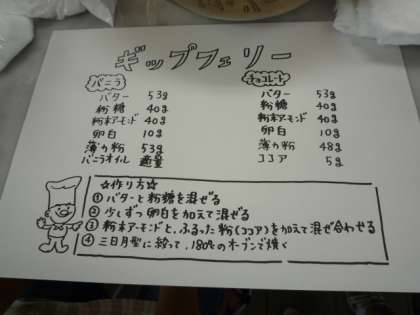 ギップフェリー
バニラ
バター 53g
粉糖 40g
粉末アーモンド 40g
卵白 10g
薄力粉 53g
バニラオイル 適量
チョコレート
バター 53g
粉糖 40g
粉末アーモンド 40g
卵白 10g
薄力粉 48g
ココア 5g
☆作り方☆
① バターと粉糖を混ぜる
② 少しずつ卵白を加えて混ぜる
③ 粉末アーモンドと、ふるった粉(ココア)を加えて混ぜ合わせる
④ 三日月型に絞って、180℃のオーブンで焼く